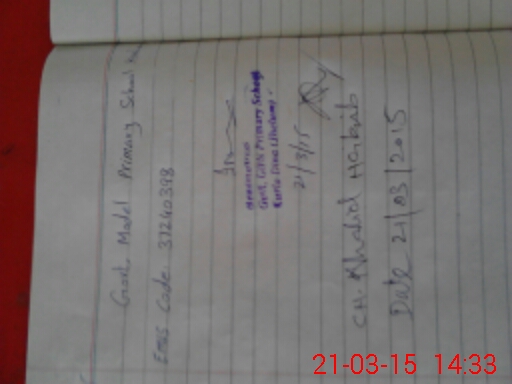 Govt. Model Primary School
EMIS Code 37240398
Headmistress
Govt. Girls Primary School
21/3/15
CH. Khalid Habib
Date 21/03/2015
21-03-15 14:33